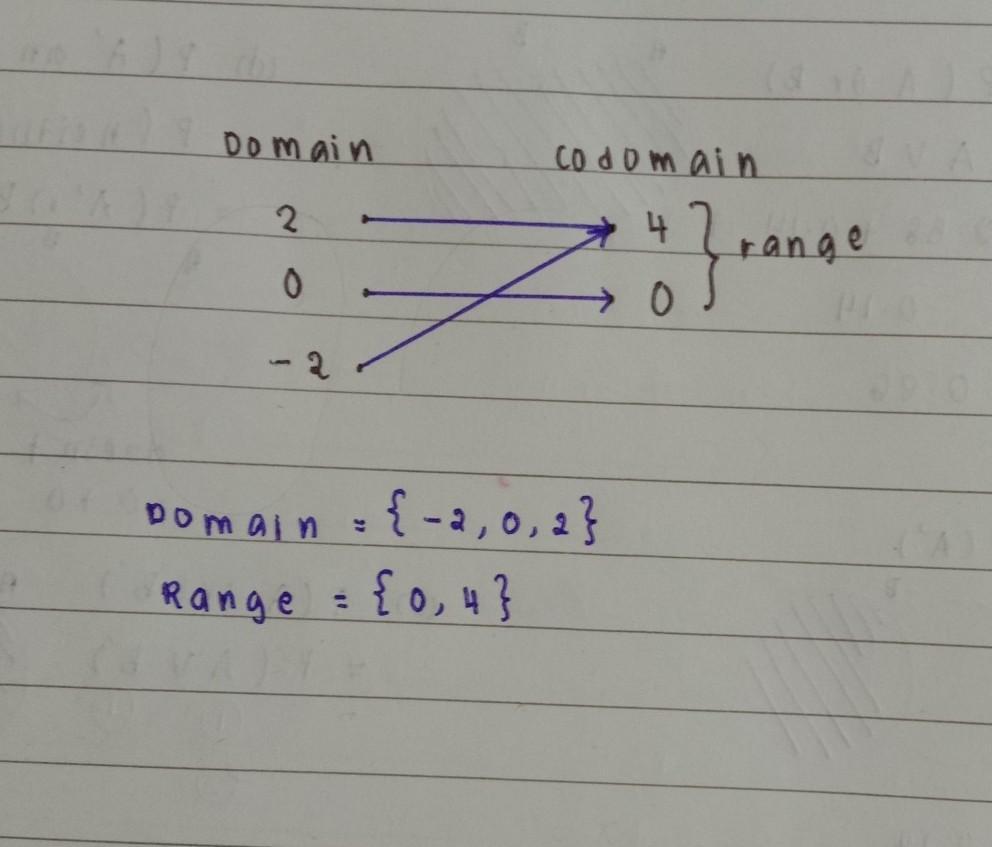 Domain codomain
2 4 } range
0 0
-2
Domain = {-2, 0, 2}
Range = {0, 4}